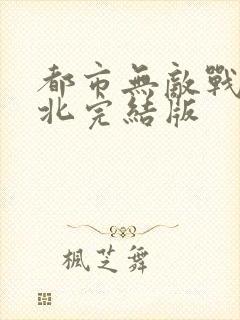 都市無敵戰
北完結版
楓芝舞